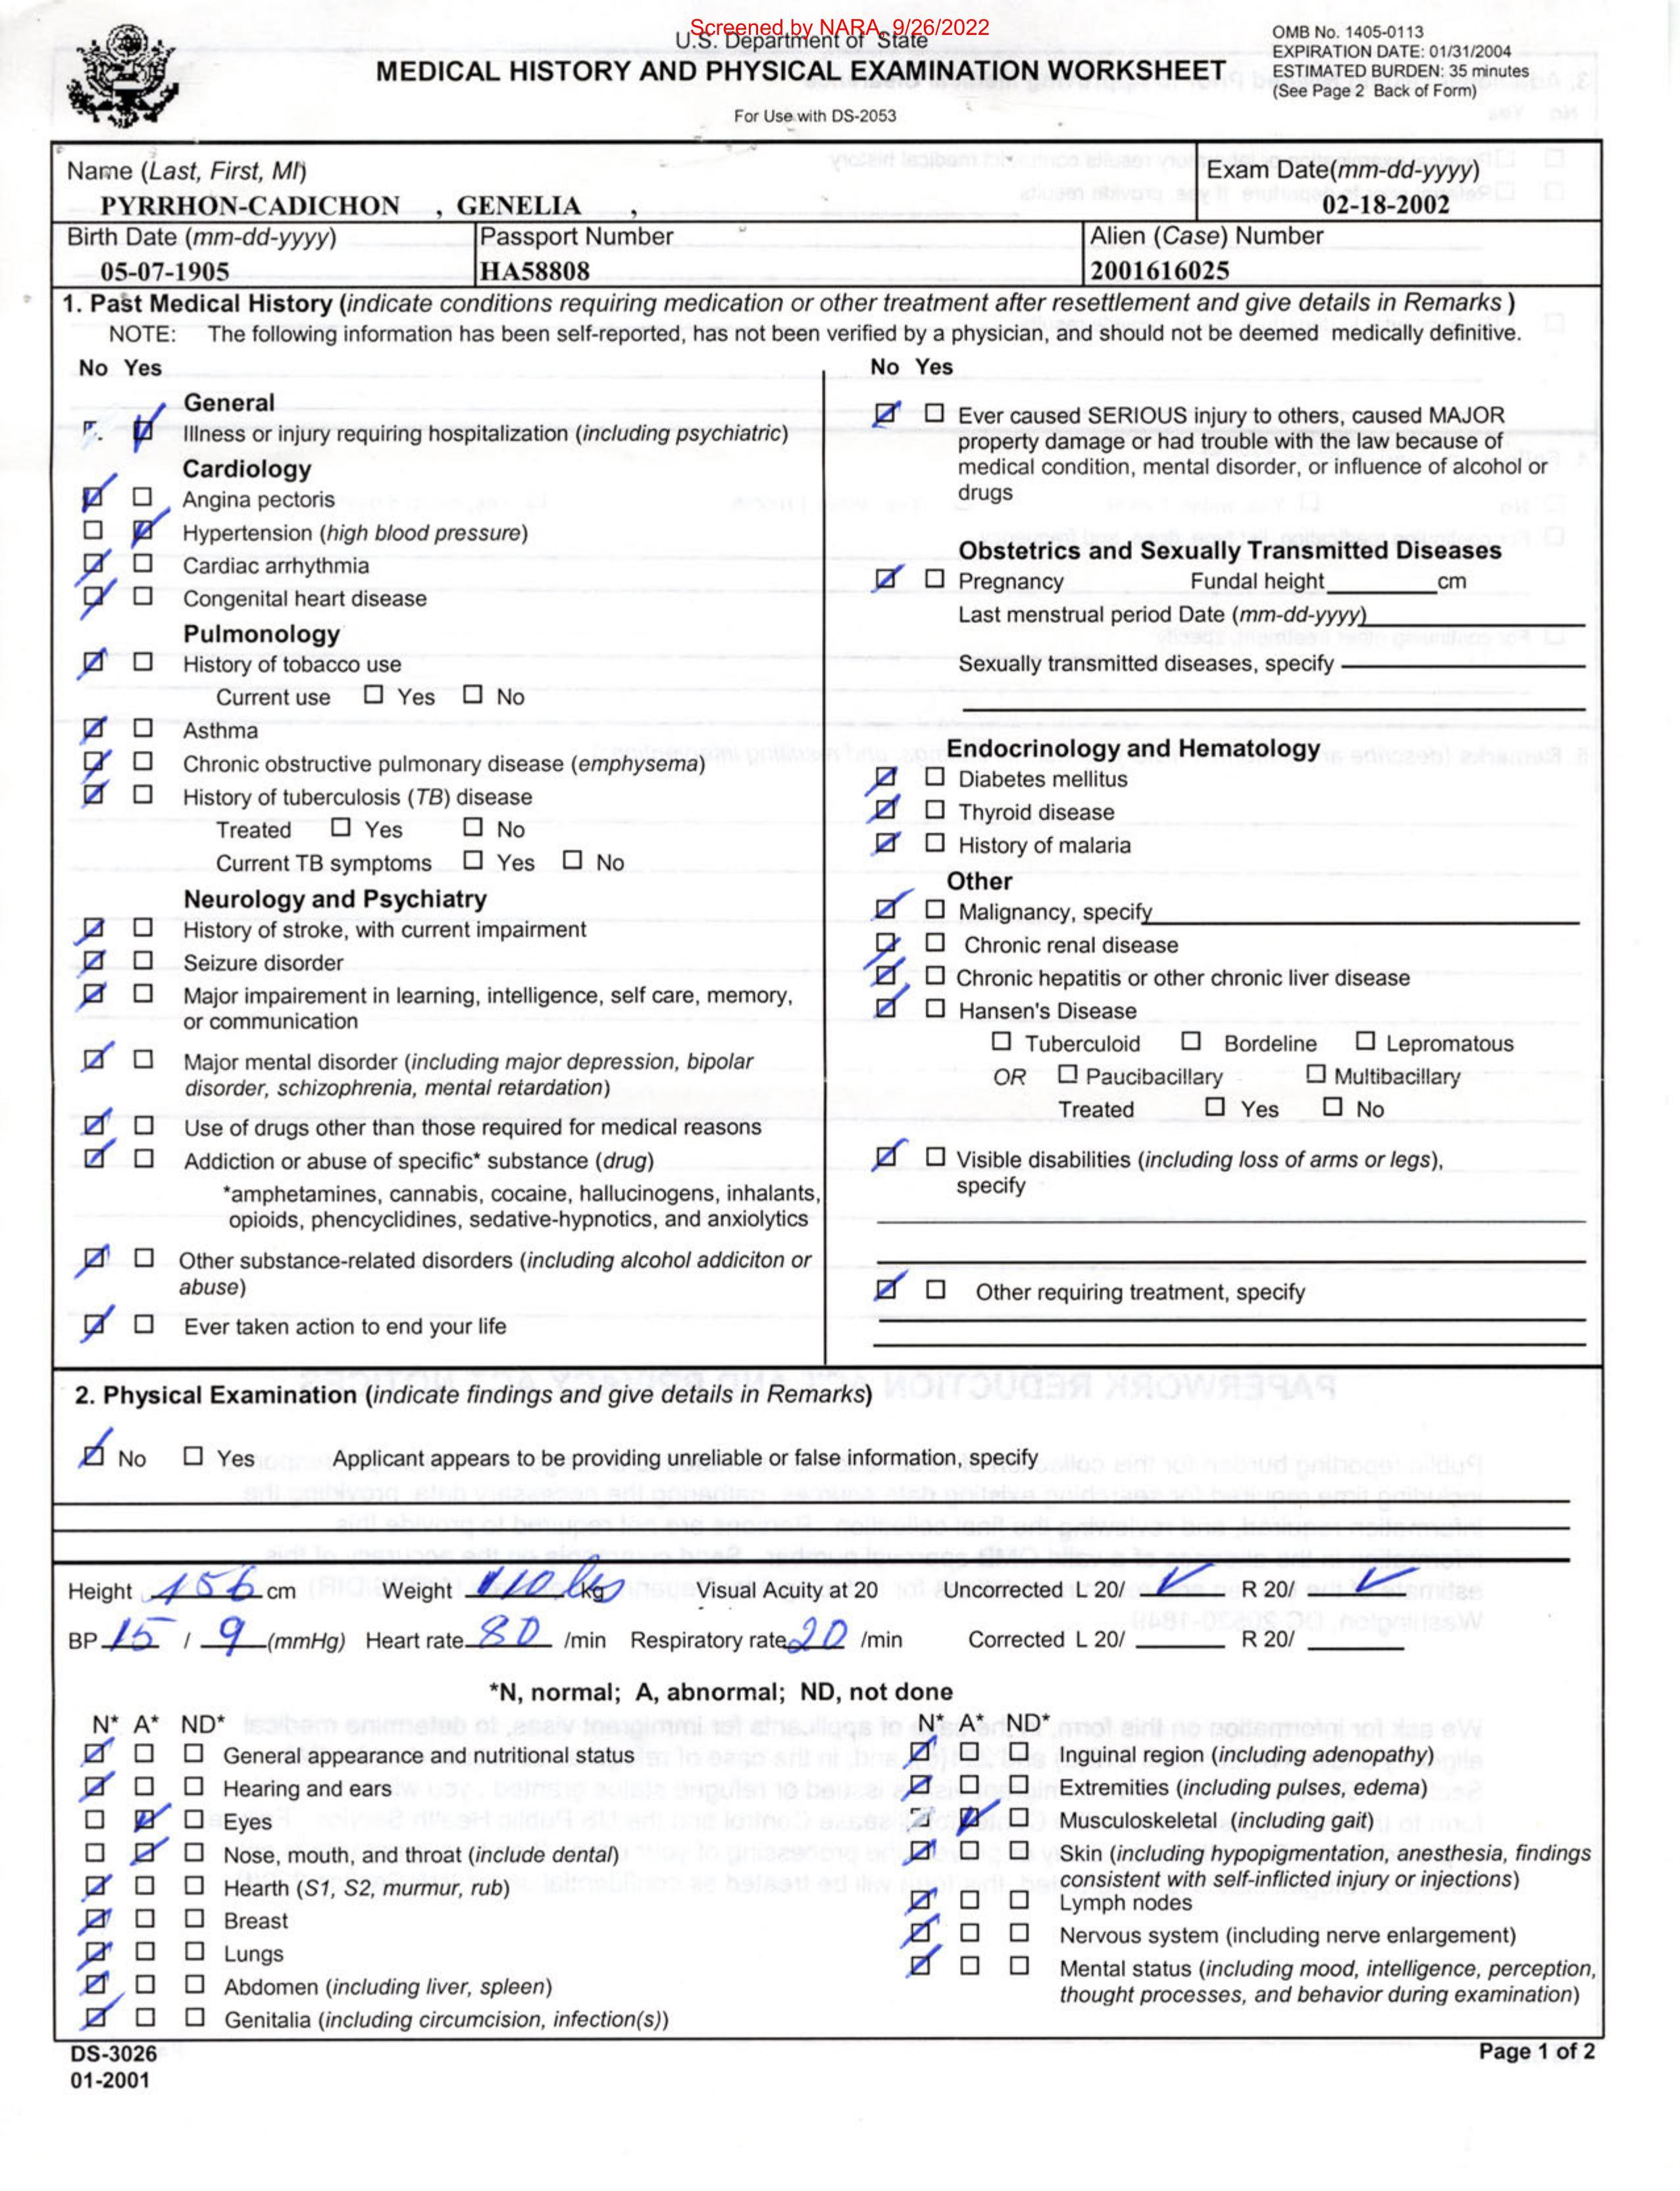 Screened by NARA, 9/26/2022
U.S. Department of State
MEDICAL HISTORY AND PHYSICAL EXAMINATION WORKSHEET
For Use with DS-2053
OMB No. 1405-0113
EXPIRATION DATE: 01/31/2004
ESTIMATED BURDEN: 35 minutes
(See Page 2 Back of Form)
Name (Last, First, MI)
PYRRHON-CADICHON , GENELIA ,
Exam Date(mm-dd-yyyy)
02-18-2002
Birth Date (mm-dd-yyyy)
05-07-1905
Passport Number
HA58808
Alien (Case) Number
2001616025
1. Past Medical History (indicate conditions requiring medication or other treatment after resettlement and give details in Remarks )
NOTE: The following information has been self-reported, has not been verified by a physician, and should not be deemed medically definitive.
No Yes
General
Illness or injury requiring hospitalization (including psychiatric)
Cardiology
Angina pectoris
Hypertension (high blood pressure)
Cardiac arrhythmia
Congenital heart disease
Pulmonology
History of tobacco use
Current use Yes No
Asthma
Chronic obstructive pulmonary disease (emphysema)
History of tuberculosis (TB) disease
Treated Yes No
Current TB symptoms Yes No
Neurology and Psychiatry
History of stroke, with current impairment
Seizure disorder
Major impairement in learning, intelligence, self care, memory,
or communication
Major mental disorder (including major depression, bipolar
disorder, schizophrenia, mental retardation)
Use of drugs other than those required for medical reasons
Addiction or abuse of specific* substance (drug)
*amphetamines, cannabis, cocaine, hallucinogens, inhalants,
opioids, phencyclidines, sedative-hypnotics, and anxiolytics
Other substance-related disorders (including alcohol addiciton or
abuse)
Ever taken action to end your life
No Yes
Ever caused SERIOUS injury to others, caused MAJOR
property damage or had trouble with the law because of
medical condition, mental disorder, or influence of alcohol or
drugs
Obstetrics and Sexually Transmitted Diseases
Pregnancy Fundal height cm
Last menstrual period Date (mm-dd-yyyy)
Sexually transmitted diseases, specify
Endocrinology and Hematology
Diabetes mellitus
Thyroid disease
History of malaria
Other
Malignancy, specify
Chronic renal disease
Chronic hepatitis or other chronic liver disease
Hansen's Disease
Tuberculoid Bordeline Lepromatous
OR Paucibacillary Multibacillary
Treated Yes No
Visible disabilities (including loss of arms or legs),
specify
Other requiring treatment, specify
2. Physical Examination (indicate findings and give details in Remarks)
No Yes Applicant appears to be providing unreliable or false information, specify
Height 156 cm Weight kg Visual Acuity at 20 Uncorrected L 20/ R 20/
BP 15 / 9 (mmHg) Heart rate 80 /min Respiratory rate 20 /min Corrected L 20/ R 20/
*N, normal; A, abnormal; ND, not done
N* A* ND*
General appearance and nutritional status
Hearing and ears
Eyes
Nose, mouth, and throat (include dental)
Hearth (S1, S2, murmur, rub)
Breast
Lungs
Abdomen (including liver, spleen)
Genitalia (including circumcision, infection(s))
N* A* ND*
Inguinal region (including adenopathy)
Extremities (including pulses, edema)
Musculoskeletal (including gait)
Skin (including hypopigmentation, anesthesia, findings
consistent with self-inflicted injury or injections)
Lymph nodes
Nervous system (including nerve enlargement)
Mental status (including mood, intelligence, perception,
thought processes, and behavior during examination)
DS-3026
01-2001
Page 1 of 2